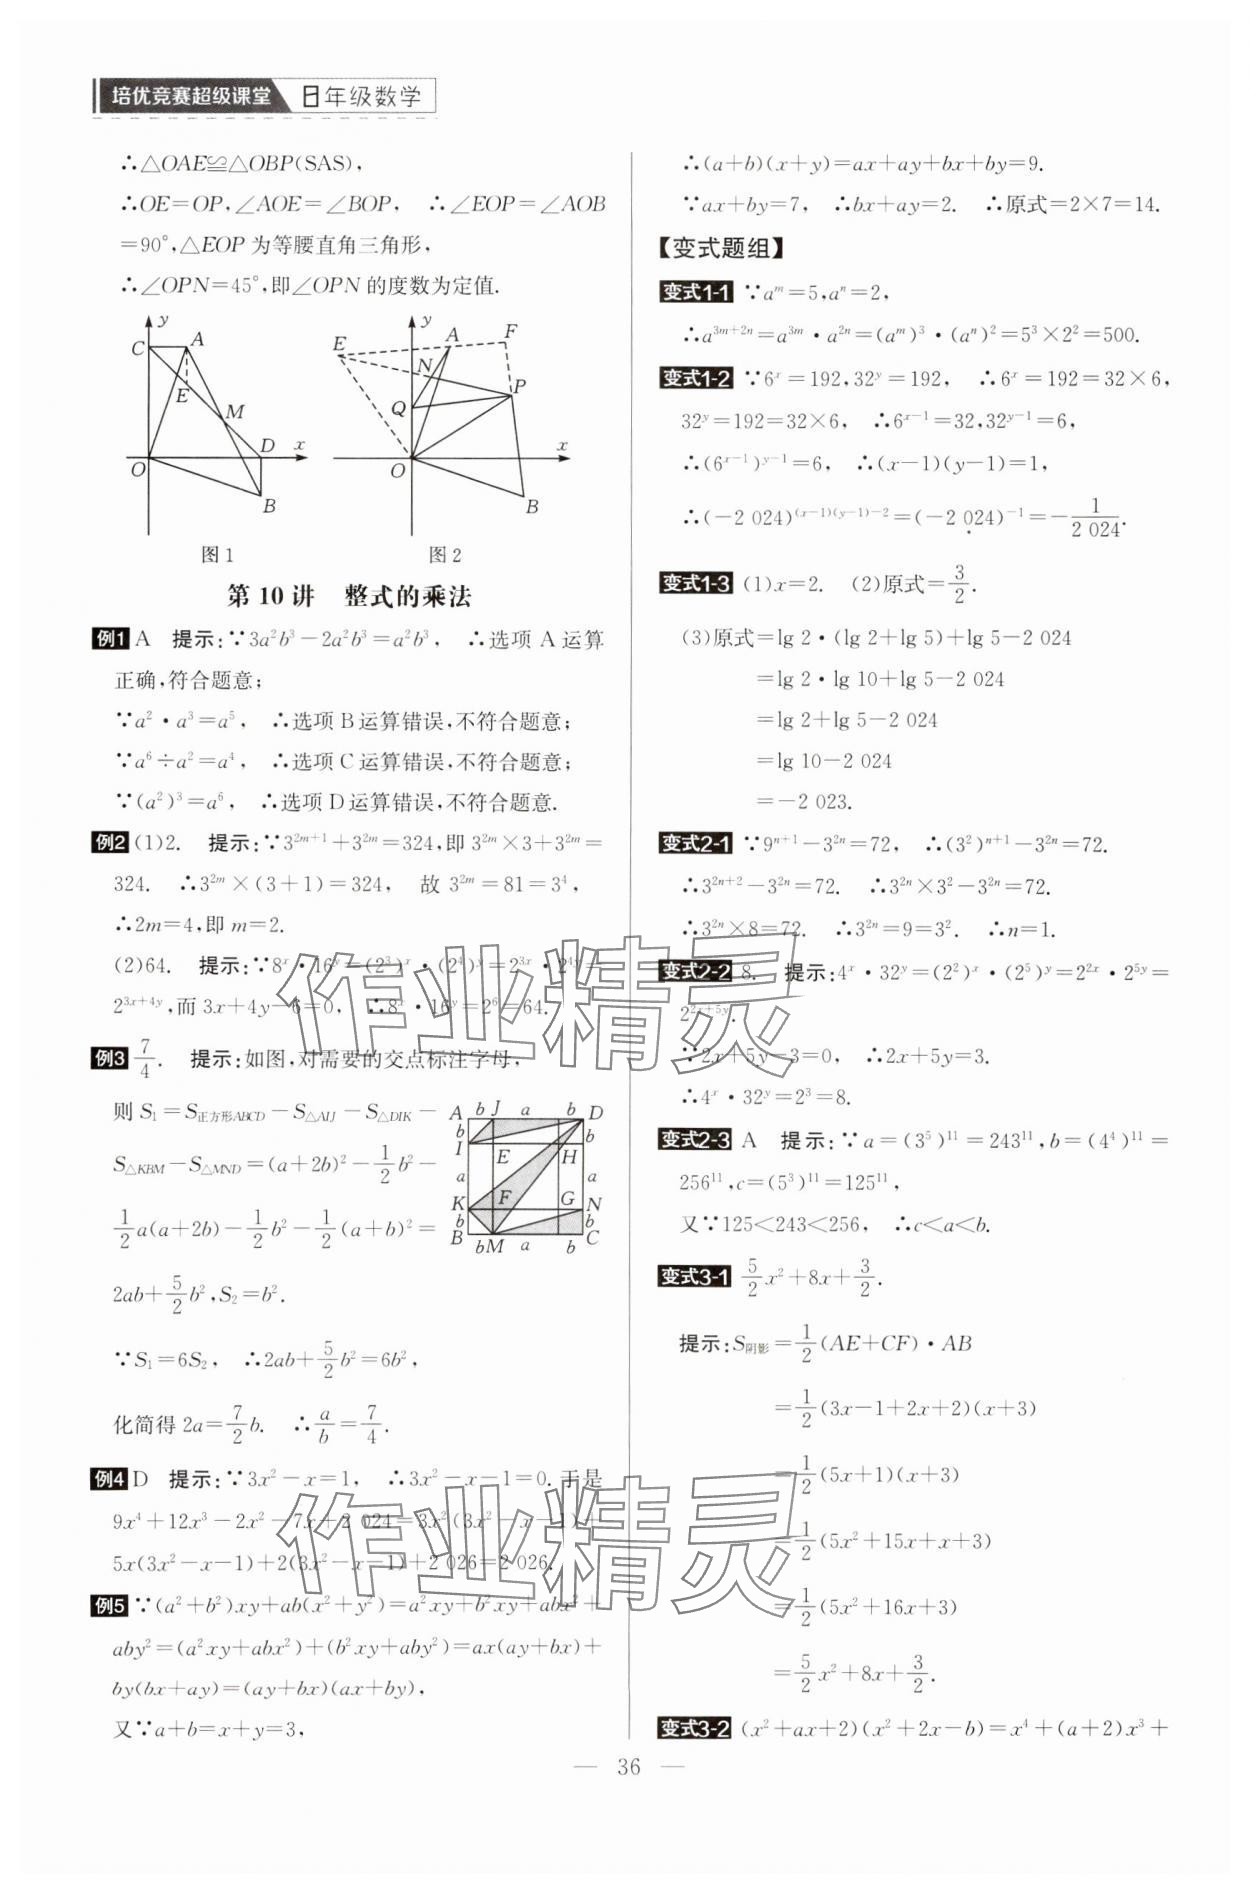 培优竞赛超级课堂 8年级数学
∴△OAE≌△OBP(SAS),
∴OE=OP,∠AOE=∠BOP, ∴∠EOP=∠AOB
=90°,△EOP 为等腰直角三角形,
∴∠OPN=45°,即∠OPN 的度数为定值.
y
C
A
E
M
D
x
O
B
图 1
y
E
A
F
N
P
Q
x
O
B
图 2
第 10 讲 整式的乘法
例1 A 提示:∵3a²b³-2a²b³=a²b³, ∴选项 A 运算
正确,符合题意;
∵a²·a³=a⁵, ∴选项 B 运算错误,不符合题意;
∵a⁶÷a²=a⁴, ∴选项 C 运算错误,不符合题意;
∵(a²)³=a⁶, ∴选项 D 运算错误,不符合题意.
例2 (1)2. 提示:∵3^{2m+1}+3^{2m}=324,即 3^{2m}×3+3^{2m}=
324. ∴3^{2m}×(3+1)=324, 故 3^{2m}=81=3⁴,
∴2m=4,即 m=2.
(2)64. 提示:∵8^x·16^y=(2³)^x·(2⁴)^y=2^{3x}·2^{4y}=
2^{3x+4y},而 3x+4y-6=0, ∴8^x·16^y=2⁶=64.
例3 7/4. 提示:如图,对需要的交点标注字母,
则 S₁=S正方形ABCD-S△AIJ-S△DIK-
S△KBM-S△MND=(a+2b)²-1/2b²-
1/2a(a+2b)-1/2b²-1/2(a+b)²=
2ab+5/2b²,S₂=b².
A b J a b D
b
I E H b
a a
K F G N
b b
B bM a b C
∵S₁=6S₂, ∴2ab+5/2b²=6b²,
化简得 2a=7/2b. ∴a/b=7/4.
例4 D 提示:∵3x²-x=1, ∴3x²-x-1=0. 于是
9x⁴+12x³-2x²-7x+2 024=3x²(3x²-x-1)+
5x(3x²-x-1)+2(3x²-x-1)+2 026=2 026.
例5 ∵(a²+b²)xy+ab(x²+y²)=a²xy+b²xy+abx²+
aby²=(a²xy+abx²)+(b²xy+aby²)=ax(ay+bx)+
by(bx+ay)=(ay+bx)(ax+by),
又∵a+b=x+y=3,
∴(a+b)(x+y)=ax+ay+bx+by=9.
∵ax+by=7, ∴bx+ay=2. ∴原式=2×7=14.
【变式题组】
变式1-1 ∵a^m=5,a^n=2,
∴a^{3m+2n}=a^{3m}·a^{2n}=(a^m)³·(a^n)²=5³×2²=500.
变式1-2 ∵6^x=192,32^y=192, ∴6^x=192=32×6,
32^y=192=32×6, ∴6^{x-1}=32,32^{y-1}=6,
∴(6^{x-1})^{y-1}=6, ∴(x-1)(y-1)=1,
∴(-2 024)^{(x-1)(y-1)-2}=(-2 024)^{-1}=-1/2 024.
变式1-3 (1)x=2. (2)原式=3/2.
(3)原式=lg 2·(lg 2+lg 5)+lg 5-2 024
=lg 2·lg 10+lg 5-2 024
=lg 2+lg 5-2 024
=lg 10-2 024
=-2 023.
变式2-1 ∵9^{n+1}-3^{2n}=72, ∴(3²)^{n+1}-3^{2n}=72.
∴3^{2n+2}-3^{2n}=72. ∴3^{2n}×3²-3^{2n}=72.
∴3^{2n}×8=72. ∴3^{2n}=9=3². ∴n=1.
变式2-2 8. 提示:4^x·32^y=(2²)^x·(2⁵)^y=2^{2x}·2^{5y}=
2^{2x+5y}.
∵2x+5y-3=0, ∴2x+5y=3.
∴4^x·32^y=2³=8.
变式2-3 A 提示:∵a=(3⁵)¹¹=243¹¹,b=(4⁴)¹¹=
256¹¹,c=(5³)¹¹=125¹¹,
又∵125<243<256, ∴c<a<b.
变式3-1 5/2x²+8x+3/2.
提示:S阴影=1/2(AE+CF)·AB
=1/2(3x-1+2x+2)(x+3)
=1/2(5x+1)(x+3)
=1/2(5x²+15x+x+3)
=1/2(5x²+16x+3)
=5/2x²+8x+3/2.
变式3-2 (x²+ax+2)(x²+2x-b)=x⁴+(a+2)x³+
— 36 —
作业精灵
作业精灵